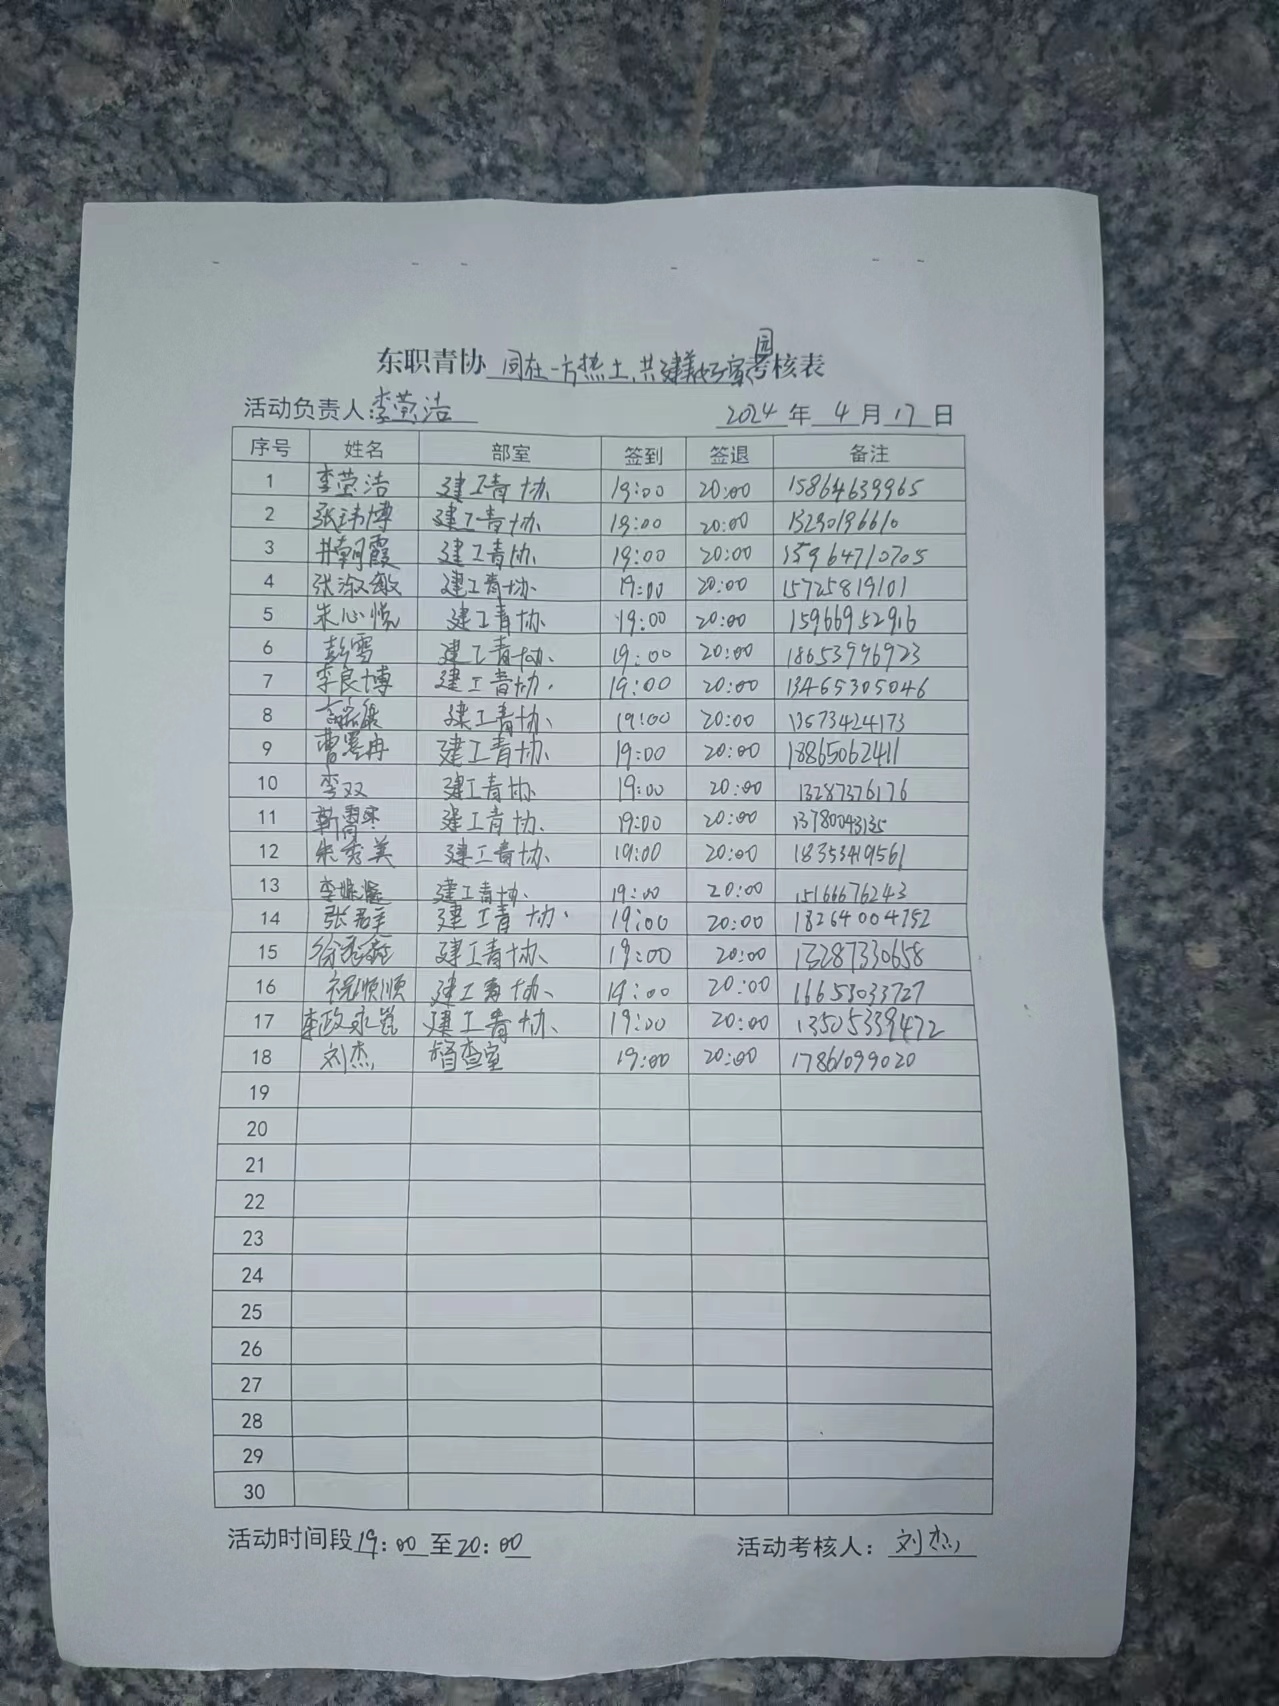 东职青协 同在一方热土，共建美好家园考核表
活动负责人:李萤洁 2024 年 4 月 17 日
序号 姓名 部室 签到 签退 备注
1 李萤洁 建工青协 19:00 20:00 15864639965
2 张玮博 建工青协 19:00 20:00 15290196610
3 井朝霞 建工青协 19:00 20:00 15964710705
4 张淑敏 建工青协 19:00 20:00 15725819101
5 朱心悦 建工青协 19:00 20:00 15966952916
6 彭雪 建工青协 19:00 20:00 18653996923
7 李良博 建工青协 19:00 20:00 13465305046
8 建工青协 19:00 20:00 13573424173
9 曹冉 建工青协 19:00 20:00 18865062411
10 李双 建工青协 19:00 20:00 13287376176
11 靳 建工青协 19:00 20:00 13780043135
12 朱秀美 建工青协 19:00 20:00 18353419561
13 李 建工青协 19:00 20:00 15166676243
14 张 建工青协 19:00 20:00 18264004752
15 徐 建工青协 19:00 20:00 13287330658
16 祝顺顺 建工青协 19:00 20:00 16653033727
17 李政 建工青协 19:00 20:00 13505339472
18 刘杰 督查室 19:00 20:00 17861099020
19
20
21
22
23
24
25
26
27
28
29
30
活动时间段 19:00 至 20:00 活动考核人：刘杰